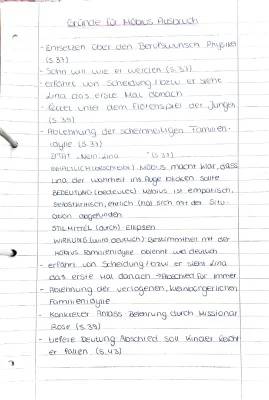 Gründe für Möbius Ausbruch
- Entsetzen über den Berufswunsch Physiker
(S.37)
- Sohn will wie er werden (S.37)
- erfährt von Scheidung / bzw er sieht
Lina das erste Mal danach
- leidet unter dem Flötenspiel der Jungen
(S.39)
- Ablehnung der scheinheiligen Familien-
idylle (S.37)
ZITAT: „Nein Lina" (S.37)
INHALTLICH (beschreibt): Möbius macht klar, dass
Lina der Wahrheit ins Auge blicken sollte
BEDEUTUNG (bedeutet): Möbius ist empatisch,
selbstkritisch, ehrlich (hat sich mit der Situ-
ation abgefunden
STILMITTEL (durch): Ellipsen
WIRKUNG (wird deutlich): Bestimmtheit mit der
Möbius Familienidylle ablehnt wird deutlich
- erfährt von Scheidung / bzw er sieht Lina
das erste Mal danach → Abschied für immer
- Ablehnung der verlogenen, kleinbürgerlichen
Familienidylle
- Konkreter Anlass: Belehrung durch Missionar
Rose (S.39)
- tiefere Deutung: Abschied soll Kinder leicht
er fallen (S.43)